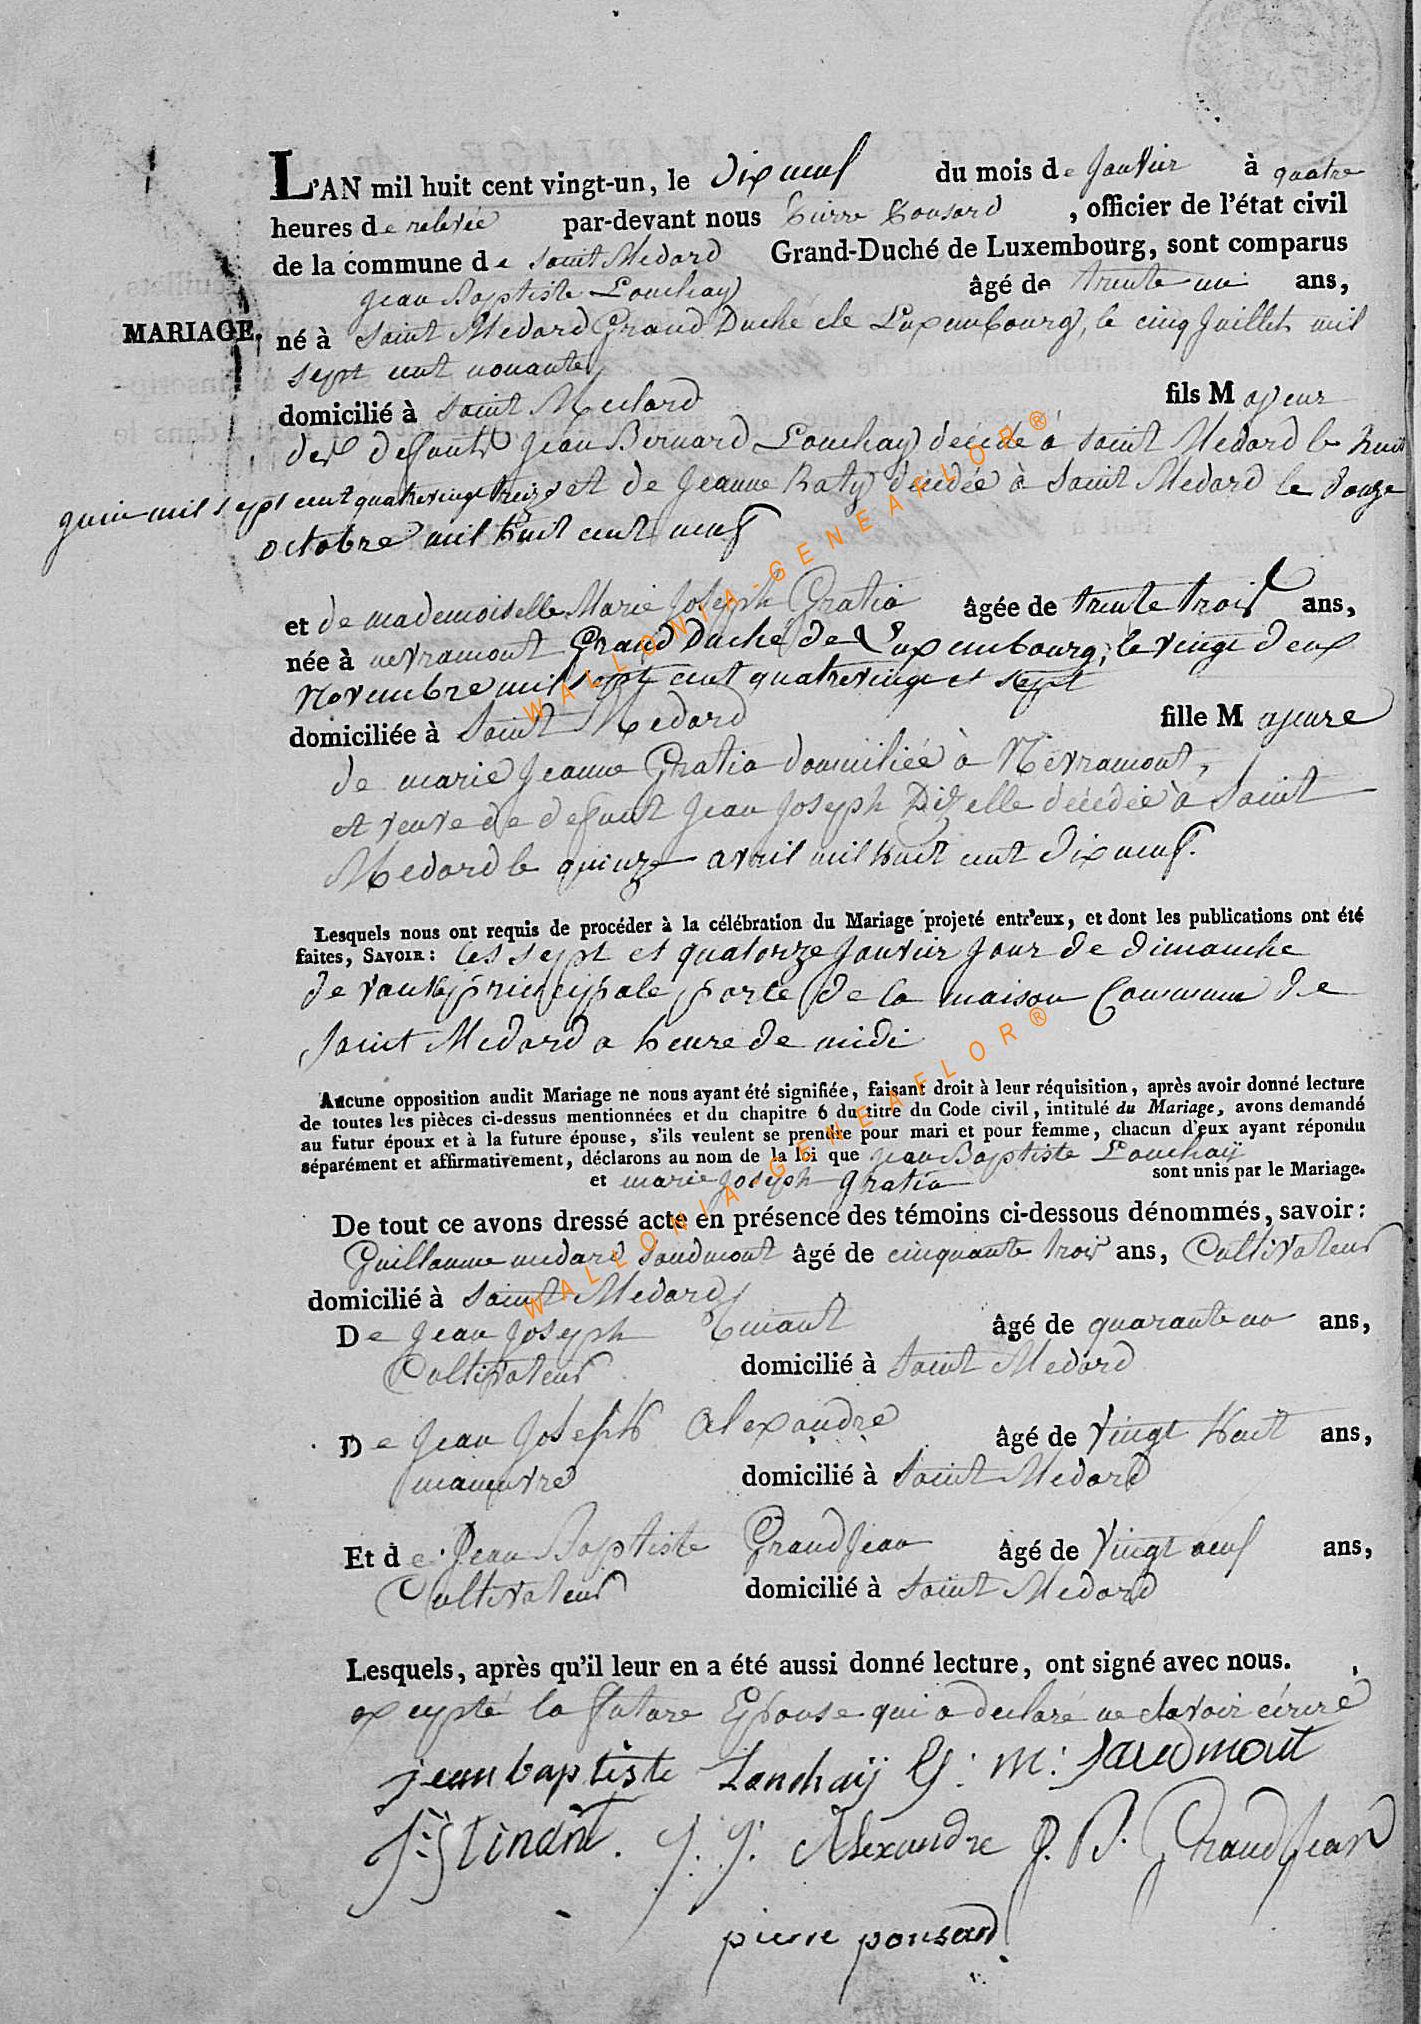 L'AN mil huit cent vingt-un, le dix neuf du mois de janvier à quatre
heures de relevée par-devant nous Pierre Ponsard, officier de l'état civil
de la commune de saint Medard Grand-Duché de Luxembourg, sont comparus
jean Baptiste Louchay âgé de trente un ans,
MARIAGE. né à Saint Medard Grand Duché de Luxembourg, le cinq juillet mil
sept cent nonante
domicilié à saint Medard fils Majeur
des defunts jean Bernard Louchay décédé à saint Medard le huit
quin mil sept cent quatrevingt treize et de jeanne Raty décédée à Saint Medard le douze
octobre mil huit cent neuf
et de mademoiselle Marie joseph Gratia âgée de trente trois ans,
née à nevramont Grand Duché de Luxembourg, le vingt deux
Novembre mil sept cent quatrevingt et sept
domiciliée à Saint Medard fille Majeure
de marie jeanne Gratia domiciliée à Nevramont,
et veuve de defunt jean joseph décédée à Saint
Medard le quinze avril mil huit cent dix neuf.
Lesquels nous ont requis de procéder à la célébration du Mariage projeté entr'eux, et dont les publications ont été
faites, SAVOIR : les sept et quatorze janvier jour de dimanche
de principale porte de la maison Commune de
Saint Medard a heure de midi
Aucune opposition audit Mariage ne nous ayant été signifiée, faisant droit à leur réquisition, après avoir donné lecture
de toutes les pièces ci-dessus mentionnées et du chapitre 6 du titre du Code civil, intitulé du Mariage, avons demandé
au futur époux et à la future épouse, s'ils veulent se prendre pour mari et pour femme, chacun d'eux ayant répondu
séparément et affirmativement, déclarons au nom de la loi que jean Baptiste Louchaÿ
et marie joseph gratia sont unis par le Mariage.
De tout ce avons dressé acte en présence des témoins ci-dessous dénommés, savoir :
Guillaume medard Saudmont âgé de cinquante trois ans, Cultivateur
domicilié à Saint Medard
De jean joseph Tinant âgé de quarante un ans,
Cultivateur domicilié à Saint Medard
De jean joseph Alexandre âgé de vingt huit ans,
manœuvre domicilié à Saint Medard
Et de jean Baptiste Grandjean âgé de vingt neuf ans,
Cultivateur domicilié à Saint Medard
Lesquels, après qu'il leur en a été aussi donné lecture, ont signé avec nous.
excepté la future Epouse qui a declaré ne savoir écrire
jean baptiste Louchaÿ G: m: Saudmont
J: J: tinant. J. J. Alexandre J. B. Grandjean
pierre ponsard
WALLONIA-GENEAFLOR®
WALLONIA-GENEAFLOR®